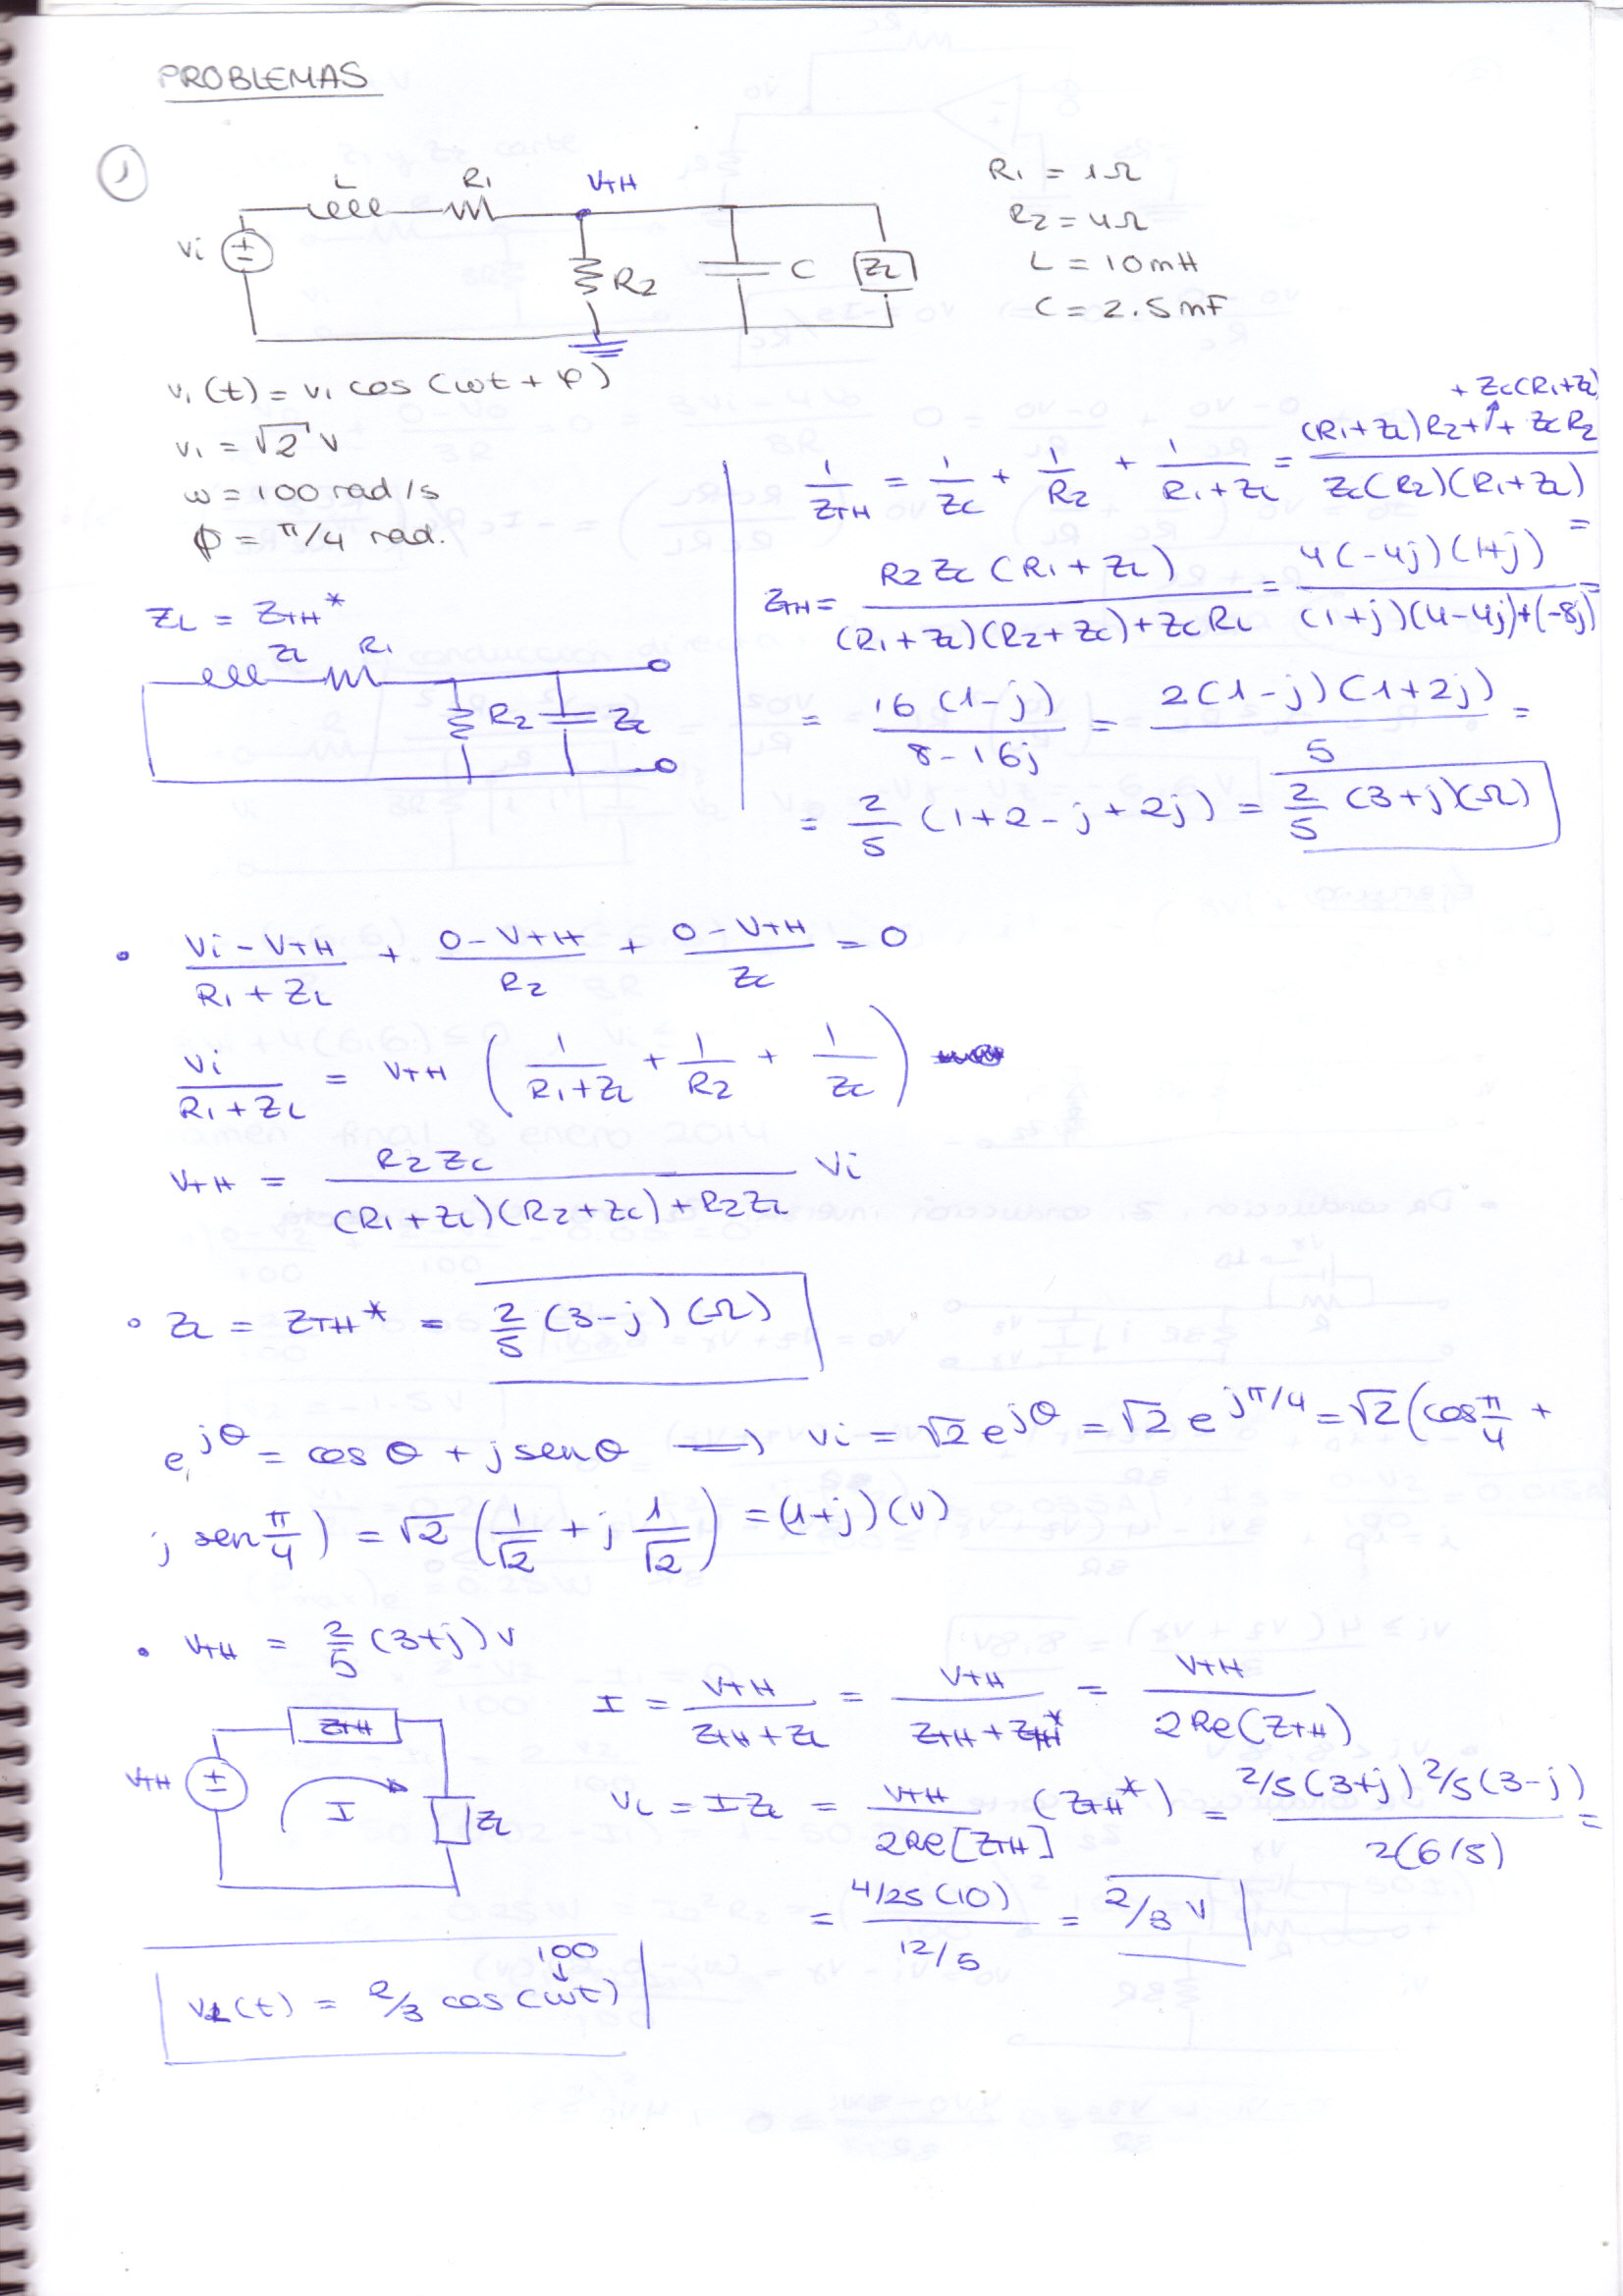 PROBLEMAS
1
L R1 VTH
Vi R2 C ZL
R1 = 1Ω
R2 = 4Ω
L = 10mH
C = 2.5mF
v1(t) = v1 cos(ωt + φ)
v1 = √2 V
ω = 100 rad/s
ϕ = π/4 rad.
ZL = ZTH*
ZL R1
R2 ZC
1/ZTH = 1/ZC + 1/R2 + 1/(R1+ZL) = ((R1+ZL)R2 + ZC(R1+ZL) + ZCR2)/(ZC(R2)(R1+ZL)) =
ZTH = R2ZC(R1+ZL)/((R1+ZL)(R2+ZC)+ZCRL) = 4(-4j)(1+j)/((1+j)(4-4j)+(-8j)) =
= 16(1-j)/(8-16j) = 2(1-j)(1+2j)/5 =
= 2/5 (1+2-j+2j) = 2/5 (3+j)(Ω)
• (Vi-VTH)/(R1+ZL) + (0-VTH)/R2 + (0-VTH)/ZC = 0
Vi/(R1+ZL) = VTH (1/(R1+ZL) + 1/R2 + 1/ZC)
VTH = R2ZC/((R1+ZL)(R2+ZC)+R2ZL) Vi
• ZL = ZTH* = 2/5 (3-j)(Ω)
e^jθ = cos θ + j sen θ → Vi = √2 e^jθ = √2 e^jπ/4 = √2 (cos π/4 +
j sen π/4) = √2 (1/√2 + j 1/√2) = (1+j)(V)
• VTH = 2/5 (3+j) V
I = VTH/(ZTH+ZL) = VTH/(ZTH+ZTH*) = VTH/(2Re(ZTH))
ZTH
VTH I ZL
VL = IZL = VTH/(2Re[ZTH]) (ZTH*) = 2/5(3+j) 2/5(3-j)/(2(6/5)) =
= 4/25(10)/(12/5) = 2/3 V
100
↓
VL(t) = 2/3 cos(ωt)